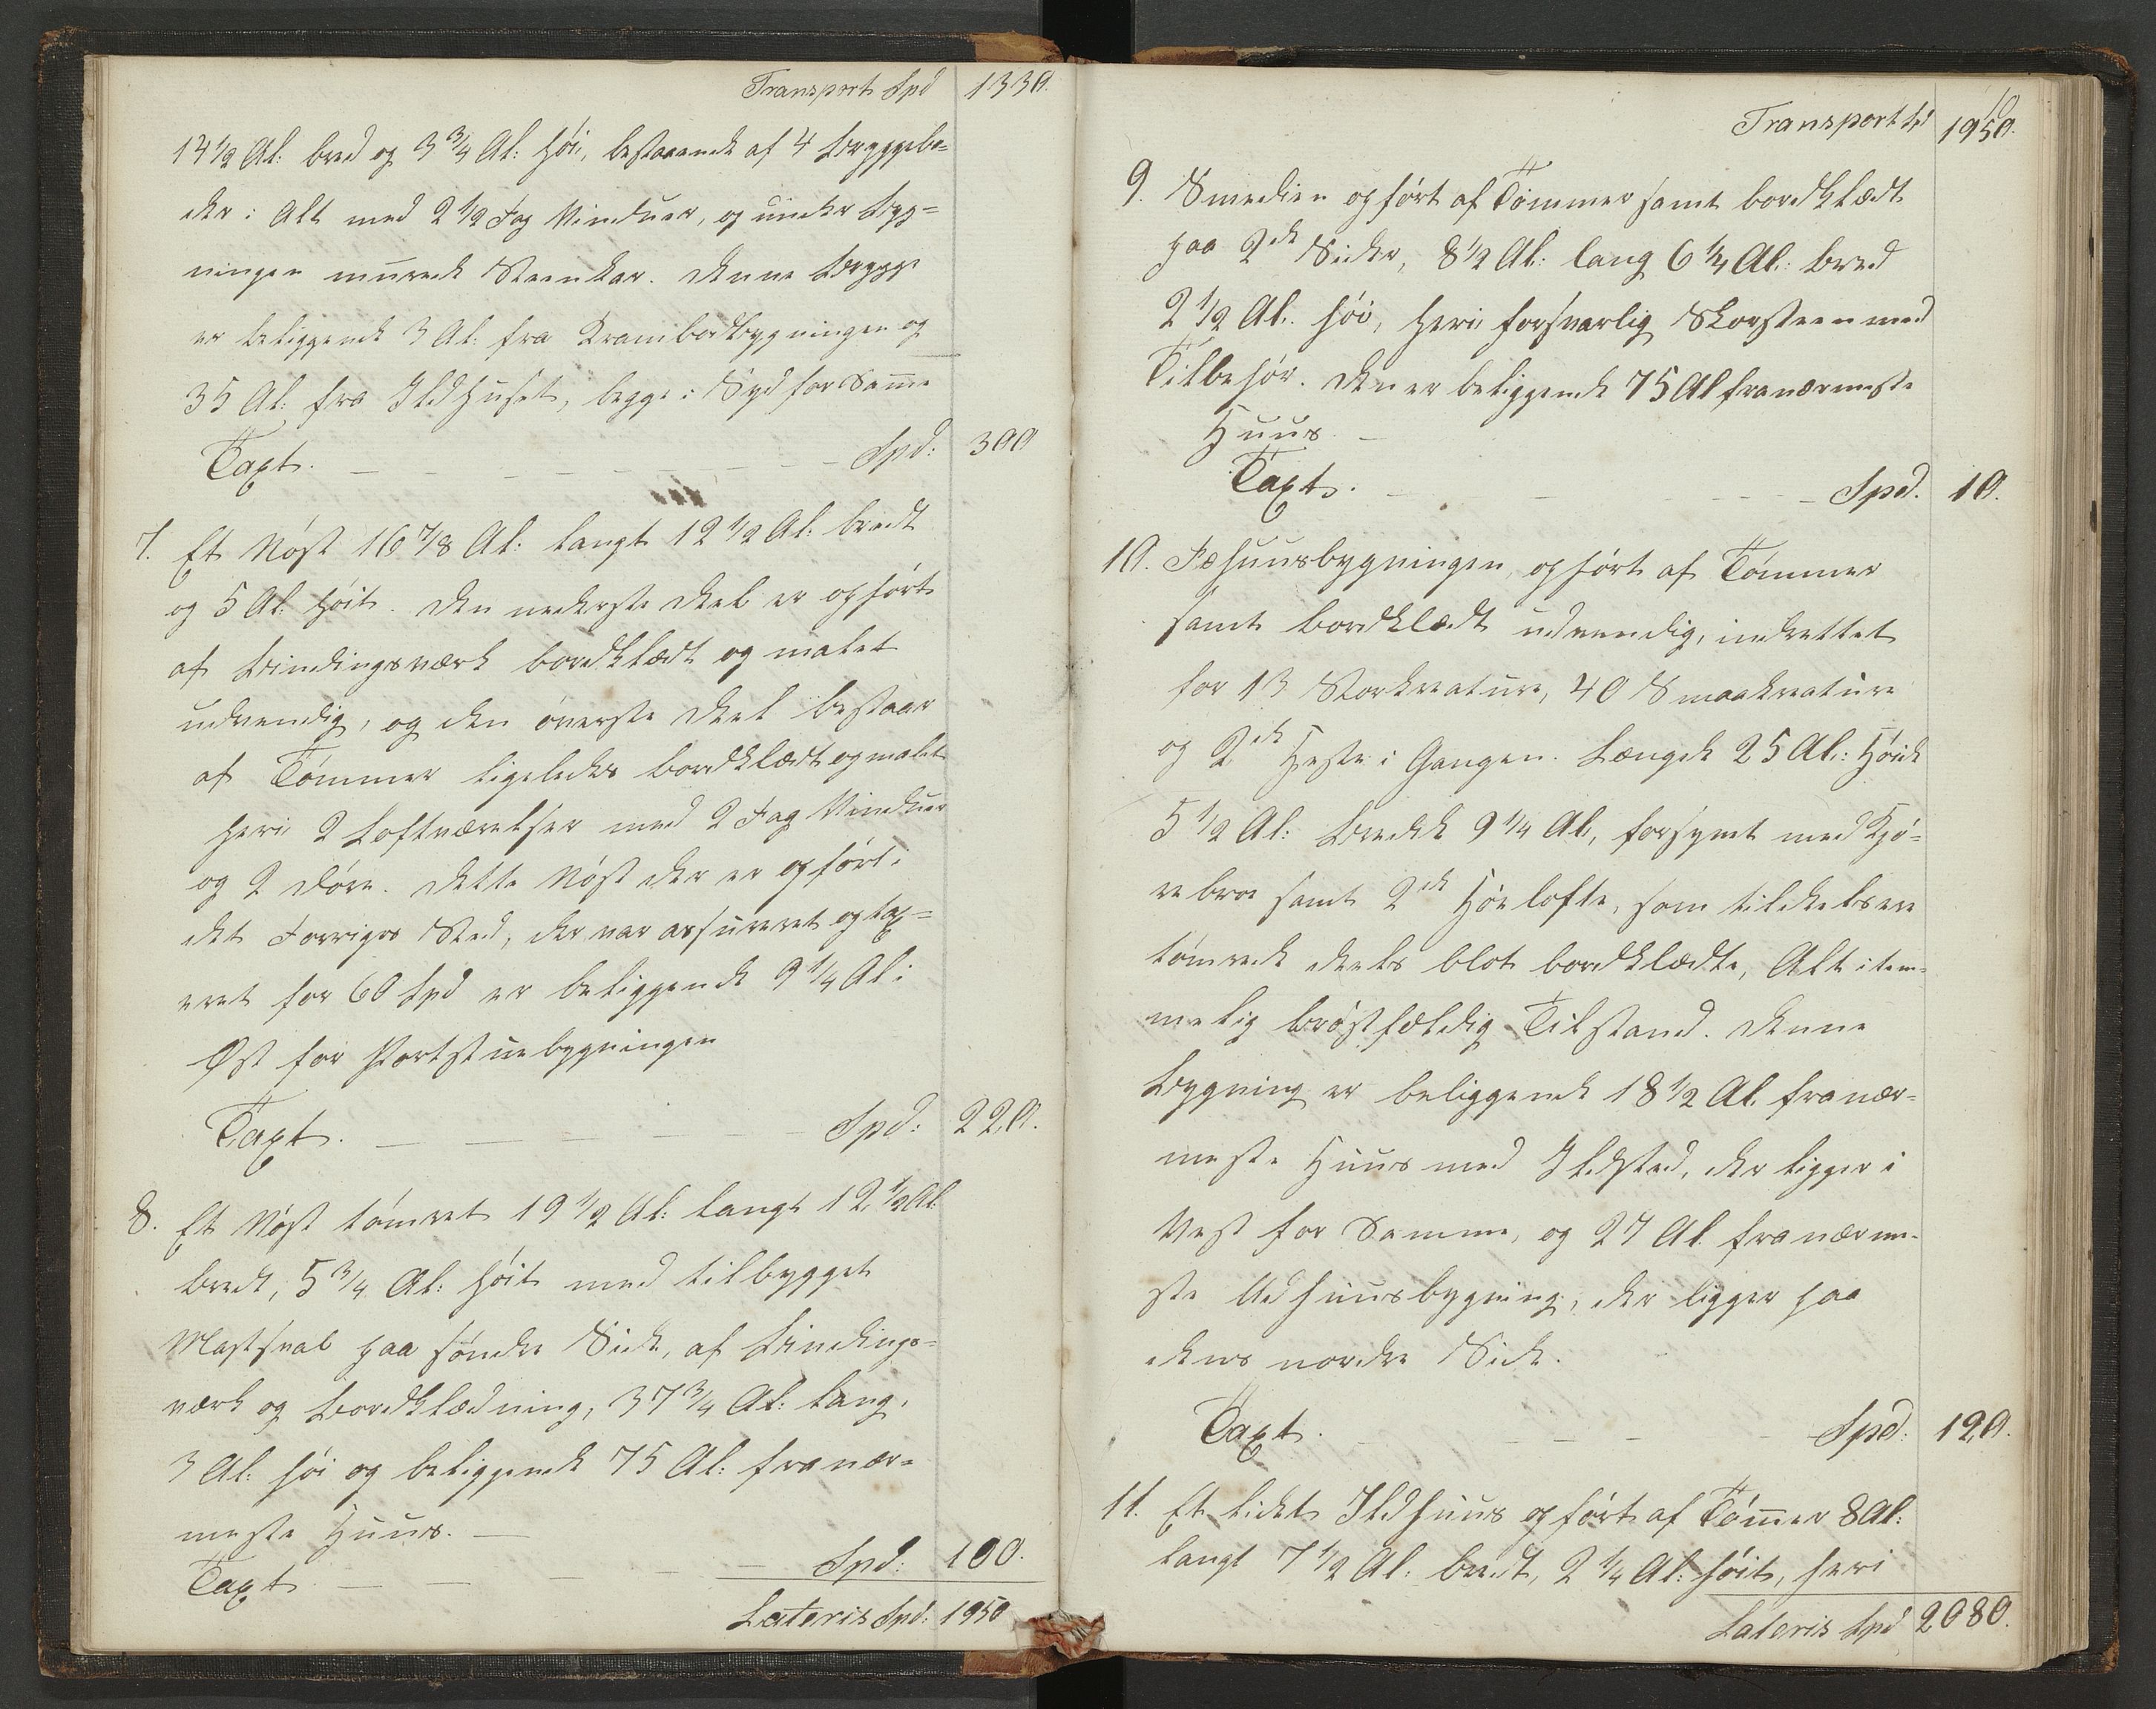 Transport Spd 1330.
14 1/2 Al: bred og 3 3/4 Al: høi, bestaaende af 4 Bryggebo=
der i Alt med 2 1/2 Fag Vinduer, og under Byg=
ningen murede Steenkar. Denne Brygge
er beliggende 3 Al: fra Krambodbygningen og
35 Al: fra Ildhuset, begge i Syd for Samme
Taxt. Spd: 300
7. Et Nøst 16 7/8 Al: langt 12 1/2 Al: bredt
og 5 Al: høit. Den nederste Deel er opført
af Bindingsværk bordklædt og malet
udvendig, og den øverste Deel bestaar
af Tømmer ligeledes bordklædt og malet
heri 2 Loftværelser med 2 Fag Vinduer
og 2 Døre. Dette Nøst der er opført i
det Forriges Sted, der var assureret og tax=
eret for 60 Spd er beliggende 9 1/4 Al i
Øst for Borgstuebygningen
Taxt. Spd: 220.
8. Et Nøst tømret 19 1/2 Al: langt 12 1/2 Al:
bredt, 5 3/4 Al: høit med tilbygget
Mastsval paa søndre Side, af Bindings=
værk og Bordklædning, 37 3/4 Al: lang,
3 Al: høi og beliggende 75 Al: fra nær=
meste Huus.
Taxt Spd: 100.
Lateris Spd: 1950
10
Transport Spd 1950.
9. Smedien opført af Tømmer samt bordklædt
paa 2de Sider, 8 1/2 Al: lang 6 1/4 Al: bred
2 1/2 Al. høi, heri forsvarlig Skorsteen med
Tilbehør. Den er beliggende 75 Al fra nærmeste
Huus.
Taxt. Spd. 10.
10. Fæhuusbygningen, opført af Tømmer
samt bordklædt udvendig, indrettet
for 13 Storkreature, 40 Smaakreature
og 2de Heste i Gangen. Længde 25 Al: Høide
5 1/2 Al: Bredde 9 1/4 Al, forsynet med Kjø=
rebroe samt 2de Høelofte, som tildeels ere
tømrede deels blot bordklædte, Alt i tem=
melig brøstfældig Tilstand. Denne
Bygning er beliggende 18 1/2 Al. fra nær=
meste Huus med Ildsted, der ligger i
Vest for Samme, og 27 Al. fra nærme=
ste Udhuusbygning, der ligger paa
dens nordre Side.
Taxt. Spd: 120.
11. Et lidet Ildhuus opført af Tømmer 8 Al:
langt 7 1/2 Al: bredt, 2 1/4 Al: høit, heri
Lateris Spd 2080.